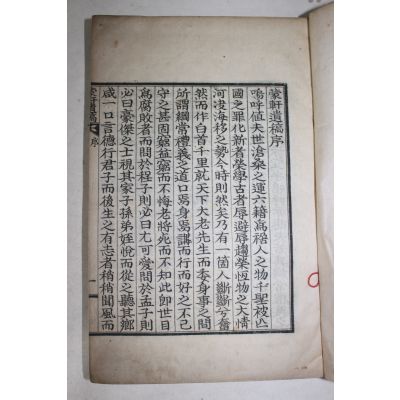 蒙軒遺稿序
嗚呼値夫世滄桑之運六籍爲人之物千聖被亾
國之罪化新者榮學古者辱避辱趨榮恆物之大情
河海移之勢今時則然矣乃有一箇人斷斷兮奮
然而作白首千里就天下大老先生而委身事之間
所謂綱常禮義之道口焉身焉講而行而好之不已
守之甚固窮益窮而不悔老將死而不知此卽世目
爲腐敗者而問於程子則必曰尤可愛問於孟子則
必曰豪傑之士視其家子孫弟姪悅而從之聽其鄕
咸一口言德行君子而後生之有志者稍稍聞風而
蒙軒遺稿 序 一